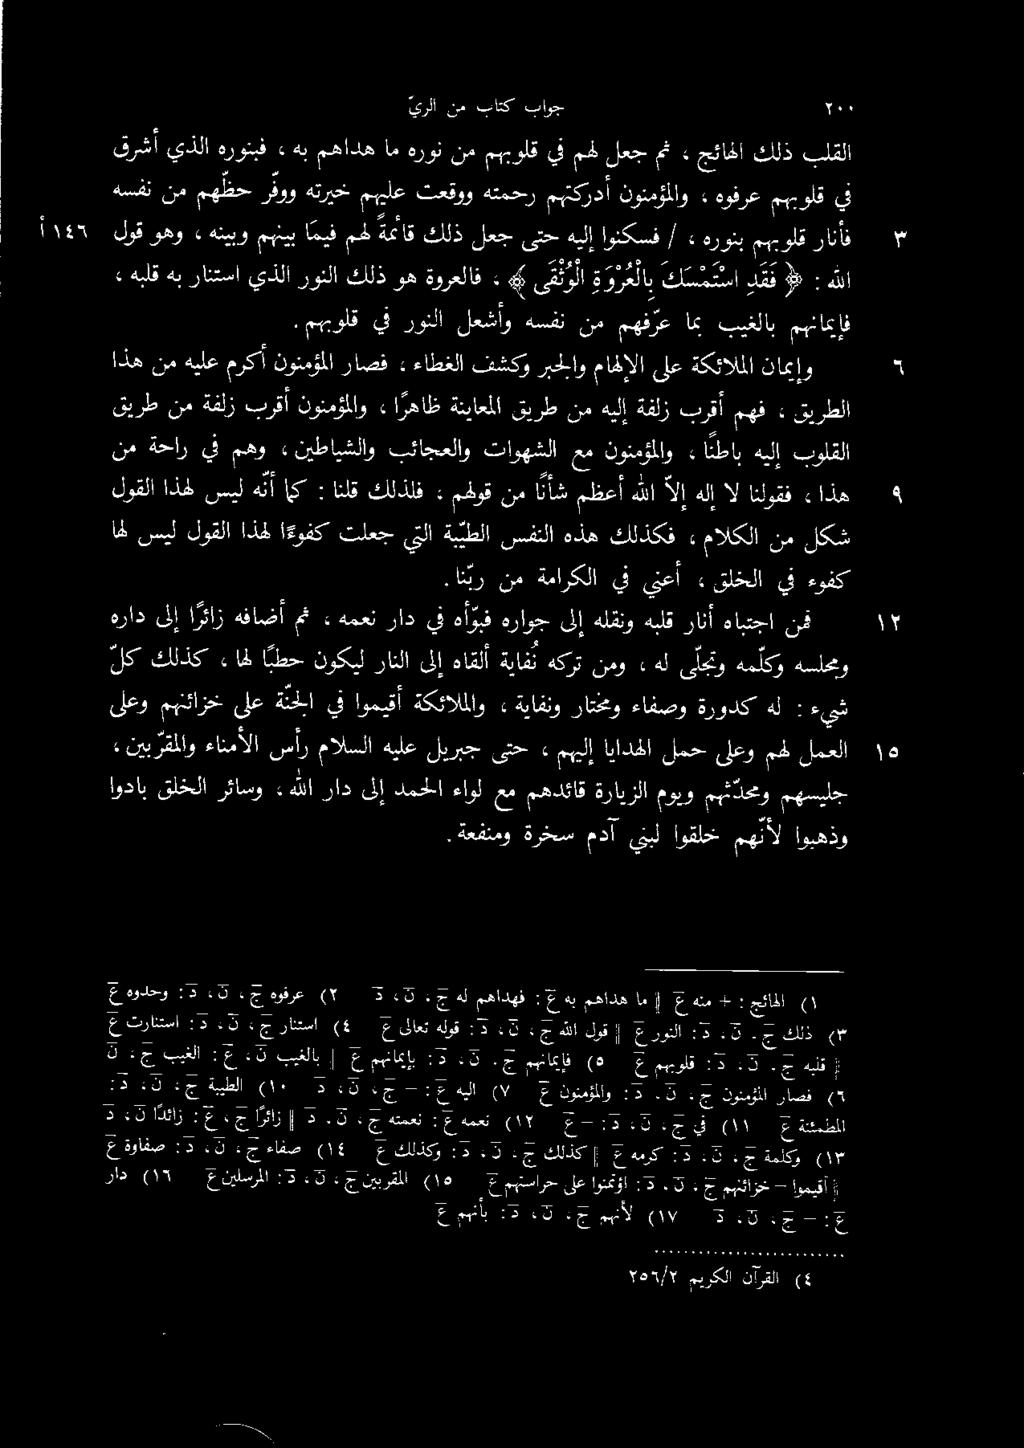 ٢٠٠ جواب كتاب من الريّ
القلب ذلك الهائج ، ثم جعل لهم في قلوبهم من نوره ما هداهم به ، فبنوره الذي أشرق
في قلوبهم عرفوه ، والمؤمنون أدركتهم رحمته ووقعت عليهم خيرته ووفّر حظّهم من نفسه
٣ فأنار قلوبهم بنوره ، / فسكنوا إليه حتى جعل ذلك قأئمةً لهم فيما بينهم وبينه ، وهو قول ١٤٦ أ
الله : ﴿ فَقَدِ اسْتَمْسَكَ بِالْعُرْوَةِ الْوُثْقَى ﴾ ، فالعروة هو ذلك النور الذي استنار به قلبه ،
فإيمانهم بالغيب بما عرّفهم من نفسه وأشعل النور في قلوبهم .
٦ وإيمان الملائكة على الإلهام والجبر وكشف الغطاء ، فصار المؤمنون أكرم عليه من هذا
الطريق ، فهم أقرب زلفة إليه من طريق المعاينة ظاهرًا ، والمؤمنون أقرب زلفة من طريق
القلوب إليه باطنًا ، والمؤمنون مع الشهوات والعجائب والشياطين ، وهم في راحة من
٩ هذا ، فقولنا لا إله إلاّ الله أعظم شأنًا من قولهم ، فلذلك قلنا : كما أنّه ليس لهذا القول
شكل من الكلام ، فكذلك هذه النفس الطيّبة التي جعلت كفوءًا لهذا القول ليس لها
كفوء في الخلق ، أعني في الكرامة من ربّنا .
١٢ فمن اجتباه أنار قلبه ونقله إلى جواره فبوّأه في دار نعمه ، ثم أضافه زائرًا إلى داره
ومجلسه وكلّمه وتجلّى له ، ومن تركه نُفاية ألقاه إلى النار ليكون حطبًا لها ، كذلك كلّ
شيء : له كدورة وصفاء ومختار ونفاية ، والملائكة أقيموا في الجنّة على خزائنهم وعلى
١٥ العمل لهم وعلى حمل الهدايا إليهم ، حتى جبريل عليه السلام رأس الأمناء والمقرّبين ،
جليسهم ومحدّثهم ويوم الزيارة قائدهم مع لواء الحمد إلى دار الله ، وسائر الخلق بادوا
وذهبوا لأنّهم خلقوا لبني آدم سخرة ومنفعة .
١) الهائج : + منه ع || ما هداهم به ع : فهداهم له ج ، ن ، د ٢) عرفوه ج ، ن ، د : وحدوه ع
٣) ذلك ج ، ن ، د : النور ع || قول الله ج ، ن ، د : قوله تعالى ع ٤) استنار ج ، ن ، د : استنارت ع
|| قلبه ج ، ن ، د : قلوبهم ع ٥) فإيمانهم ج ، ن ، د : بإيمانهم ع || بالغيب ن ، ع : الغيب ج ، ن
٦) فصار المؤمنون ج ، ن ، د : والمؤمنون ع ٧) اليه ع : – ج ، ن ، د ١٠) الطيبة ج ، ن ، د :
المطمئنة ع ١١) في ج ، ن ، د : – ع ١٢) نعمه ع : نعمته ج ، ن ، د || زائرًا ج ، ع : زائدًا ن ، د
١٣) وكلمة ج ، ن ، د : كرمه ع || كذلك ج ، ن ، د : وكذلك ع ١٤) صفاء ج ، ن ، د : صفاوة ع
|| أقيموا – خزائنهم ج ، ن ، د : اؤتمنوا على حراستهم ع ١٥) المقربين ج ، ن ، د : المرسلين ع ١٦) دار
ع : – ج ، ن ، د ١٧) لأنهم ج ، ن ، د : بأنهم ع
٤) القرآن الكريم ٢/٢٥٦